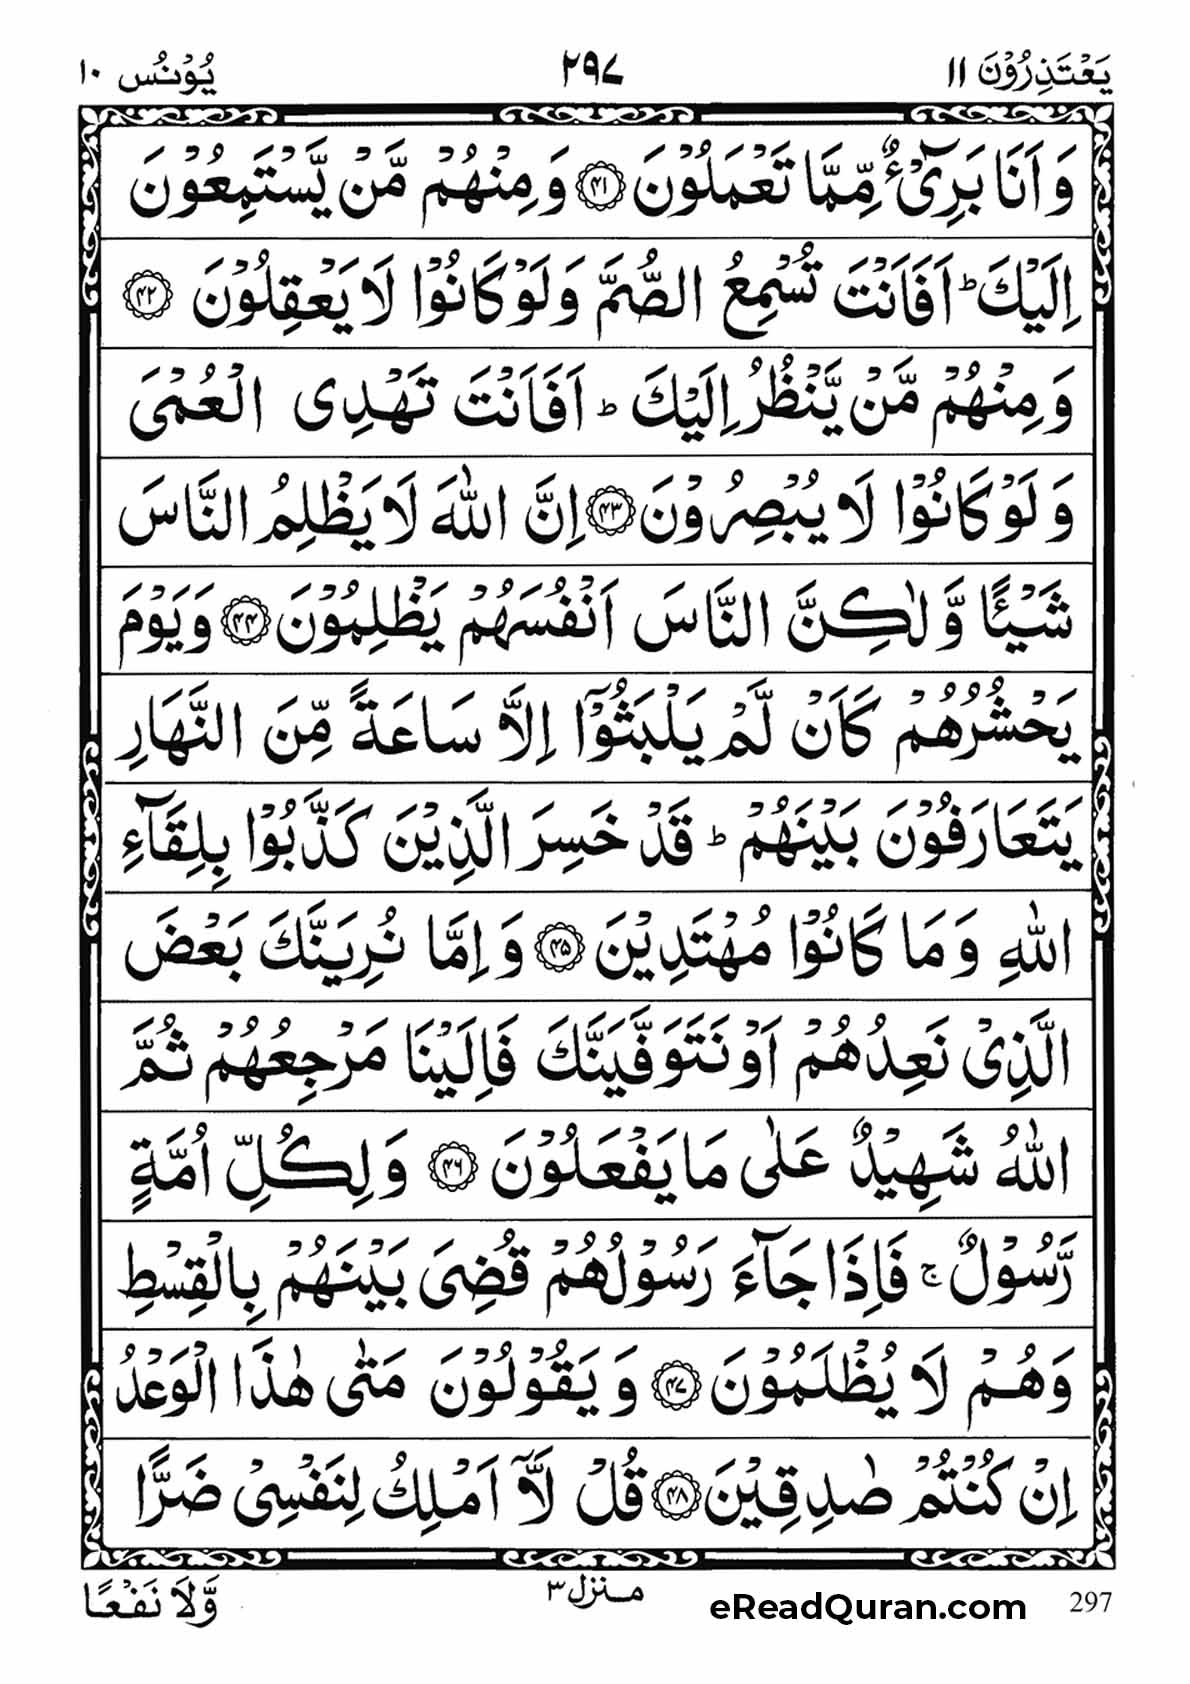 یَعْتَذِرُوْنَ ۱۱
۲۹۷
یُوْنُس ۱۰
وَ اَنَا بَرِیْٓءٌ مِّمَّا تَعْمَلُوْنَ ﴿۴۱﴾ وَ مِنْهُمْ مَّنْ یَّسْتَمِعُوْنَ
اِلَیْكَ ؕ اَفَاَنْتَ تُسْمِعُ الصُّمَّ وَ لَوْ كَانُوْا لَا یَعْقِلُوْنَ ﴿۴۲﴾
وَ مِنْهُمْ مَّنْ یَّنْظُرُ اِلَیْكَ ؕ اَفَاَنْتَ تَهْدِی الْعُمْیَ
وَ لَوْ كَانُوْا لَا یُبْصِرُوْنَ ﴿۴۳﴾ اِنَّ اللّٰهَ لَا یَظْلِمُ النَّاسَ
شَیْـًٔا وَّ لٰكِنَّ النَّاسَ اَنْفُسَهُمْ یَظْلِمُوْنَ ﴿۴۴﴾ وَ یَوْمَ
یَحْشُرُهُمْ كَاَنْ لَّمْ یَلْبَثُوْۤا اِلَّا سَاعَةً مِّنَ النَّهَارِ
یَتَعَارَفُوْنَ بَیْنَهُمْ ؕ قَدْ خَسِرَ الَّذِیْنَ كَذَّبُوْا بِلِقَآءِ
اللّٰهِ وَ مَا كَانُوْا مُهْتَدِیْنَ ﴿۴۵﴾ وَ اِمَّا نُرِیَنَّكَ بَعْضَ
الَّذِیْ نَعِدُهُمْ اَوْ نَتَوَفَّیَنَّكَ فَاِلَیْنَا مَرْجِعُهُمْ ثُمَّ
اللّٰهُ شَهِیْدٌ عَلٰی مَا یَفْعَلُوْنَ ﴿۴۶﴾ وَ لِكُلِّ اُمَّةٍ
رَّسُوْلٌ ۚ فَاِذَا جَآءَ رَسُوْلُهُمْ قُضِیَ بَیْنَهُمْ بِالْقِسْطِ
وَ هُمْ لَا یُظْلَمُوْنَ ﴿۴۷﴾ وَ یَقُوْلُوْنَ مَتٰی هٰذَا الْوَعْدُ
اِنْ كُنْتُمْ صٰدِقِیْنَ ﴿۴۸﴾ قُلْ لَّاۤ اَمْلِكُ لِنَفْسِیْ ضَرًّا
وَّلَا نَفْعًا
منزل ۳
eReadQuran.com
297